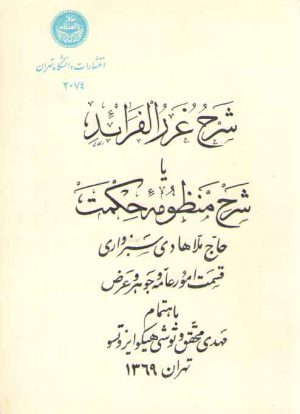 انتشارات دانشگاه تهران
۲۰۷۴
شرح غرر الفرائد
یا
شرح منظومهٔ حکمت
حاج ملا هادی سبزواری
قسمت امور عامه و جوهر و عرض
باهتمام
مهدی محقق و توشی هیکو ایزوتسو
تهران ۱۳۶۹